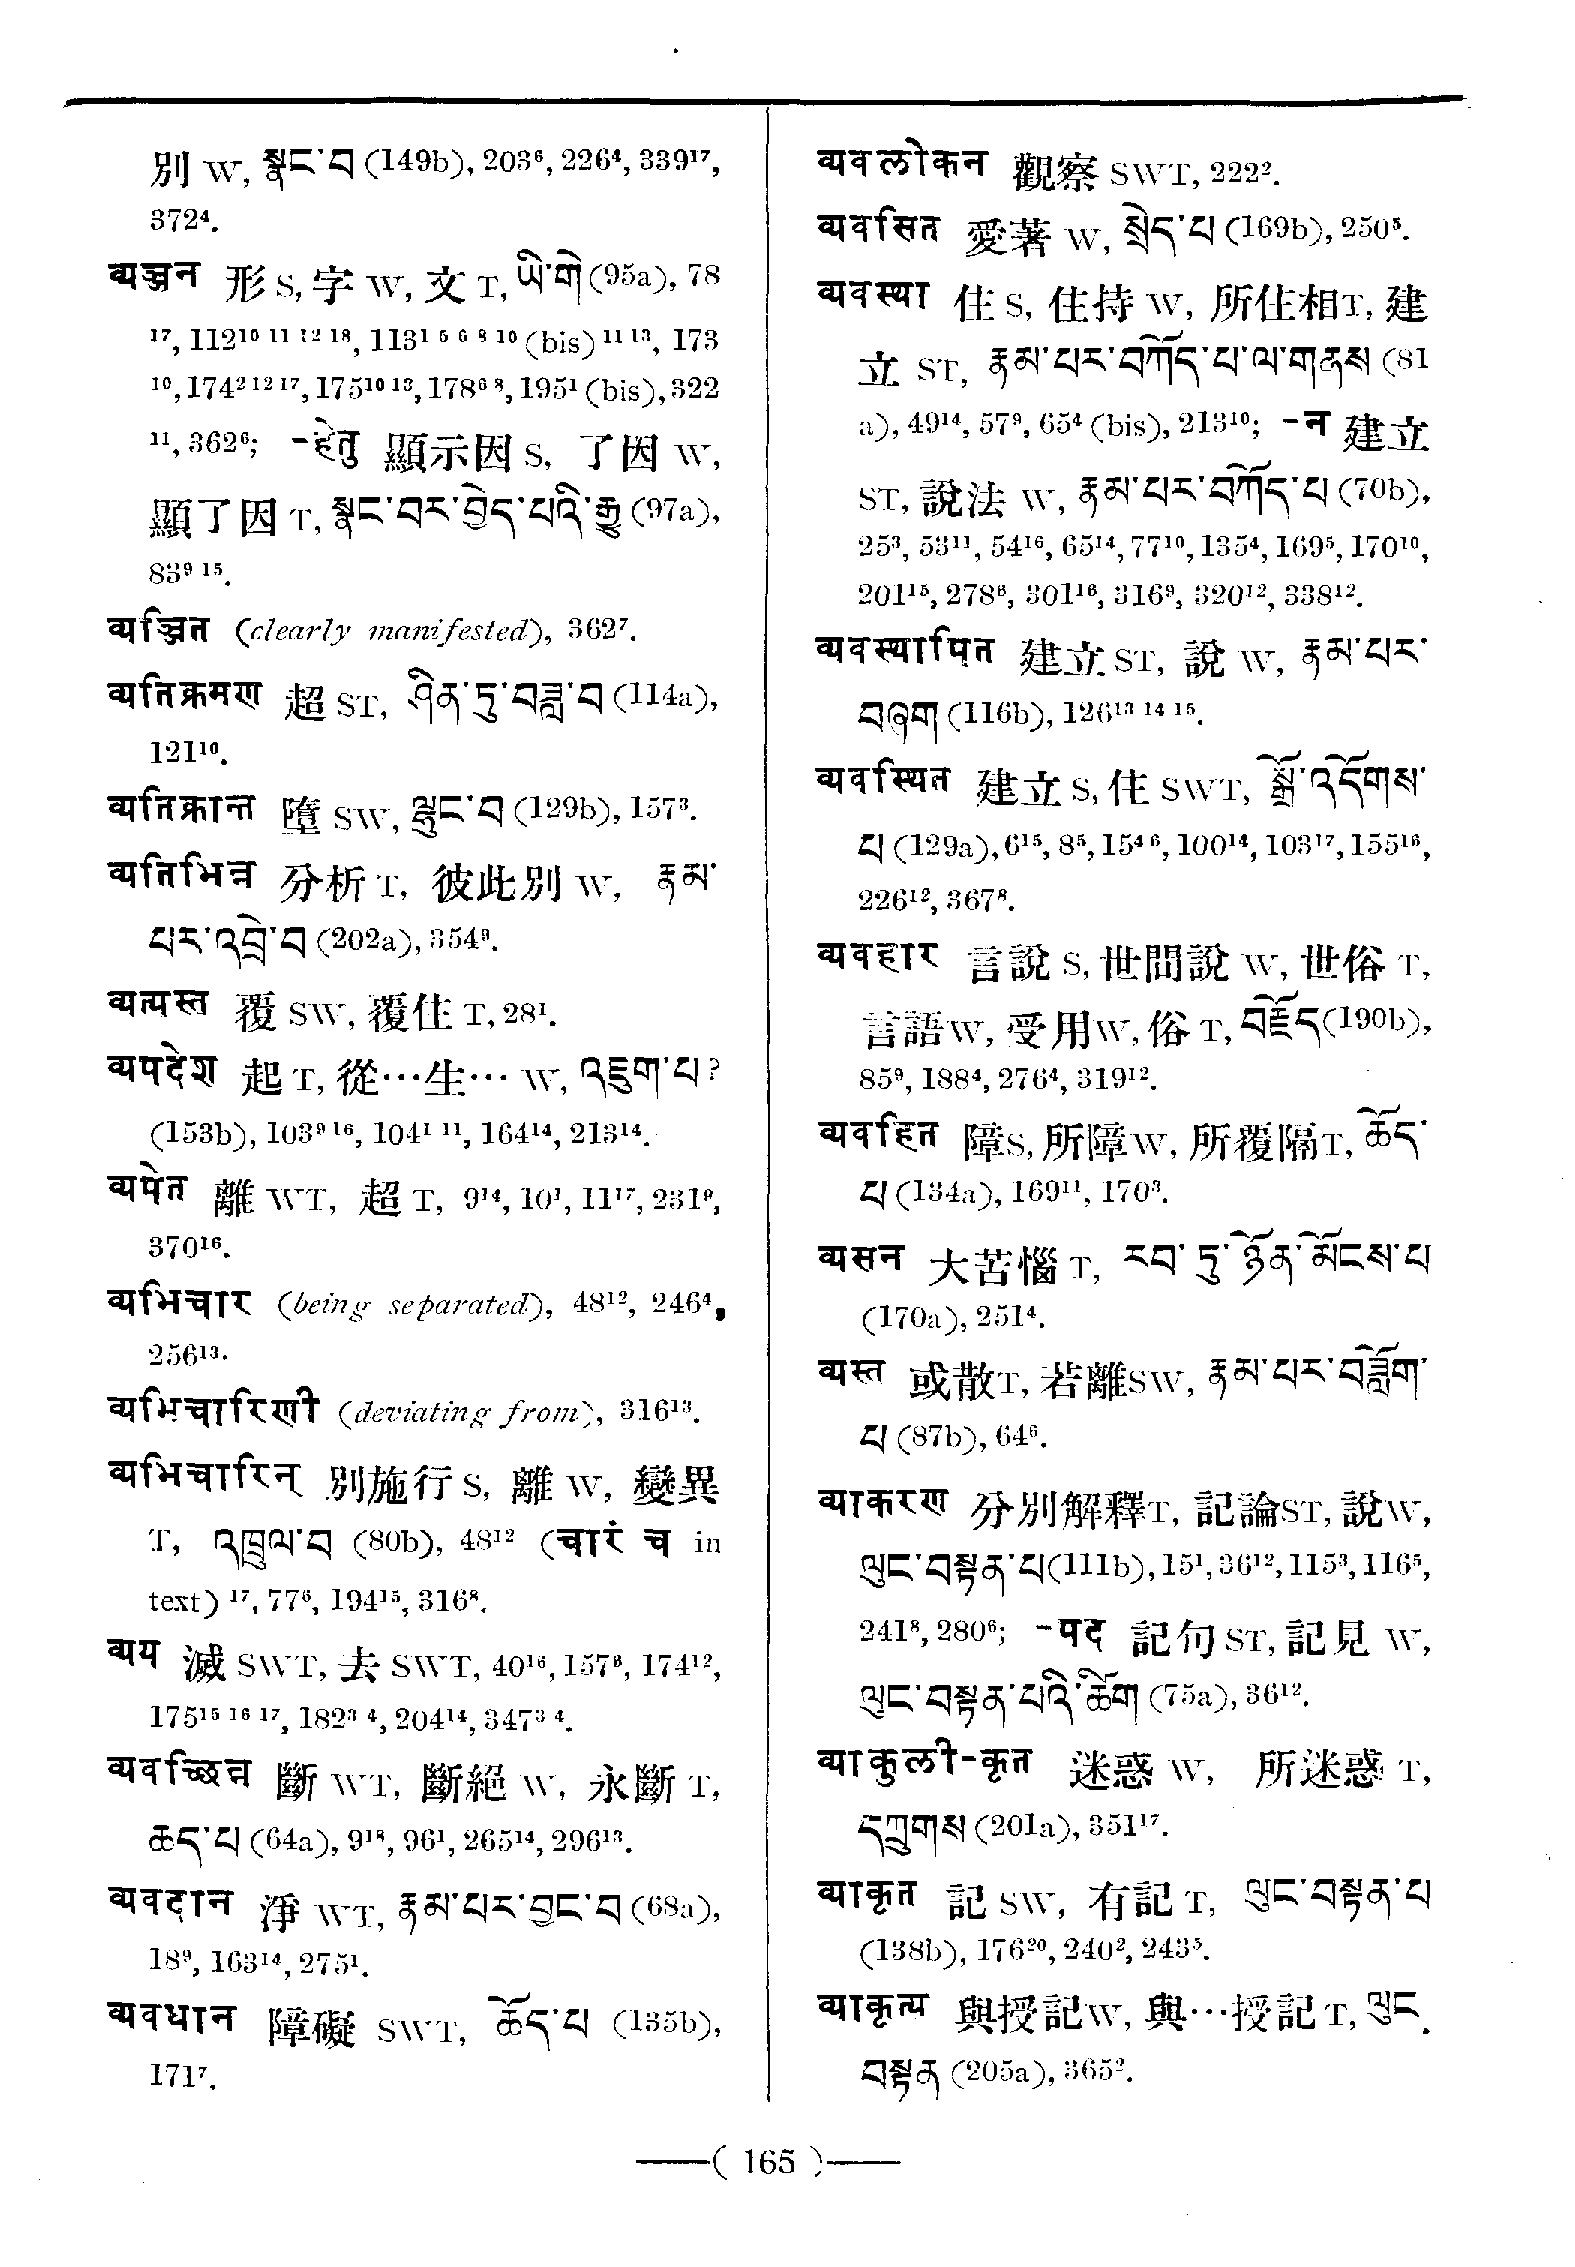 別 W, སྣང་བ (149b), 203⁶, 226⁴, 339¹⁷,
372⁴.
व्यञ्जन 形 S, 字 W, 文 T, ཡི་གེ (95a), 78
¹⁷, 112¹⁰ ¹¹ ¹² ¹⁸, 113¹ ⁵ ⁶ ⁸ ¹⁰ (bis) ¹¹ ¹³, 173
¹⁰, 174² ¹² ¹⁷, 175¹⁰ ¹³, 178⁶ ⁸, 195¹ (bis), 322
¹¹, 362⁶; -हेतु 顯示因 S, 了因 W,
顯了因 T, སྣང་བར་བྱེད་པའི་རྒྱུ (97a),
83⁹ ¹⁵.
व्यञ्जित (clearly manifested), 362⁷.
व्यतिक्रमण 超 ST, ཤིན་ཏུ་བཟླ་བ (114a),
121¹⁰.
व्यतिक्रान्त 墮 SW, ལྷུང་བ (129b), 157³.
व्यतिभिन्न 分析 T, 彼此別 W, རྣམ་
པར་འབྲེ་བ (202a), 354⁹.
व्यत्यस्त 覆 SW, 覆住 T, 28¹.
व्यपदेश 起 T, 從…生… W, འཇུག་པ?
(153b), 103⁹ ¹⁶, 104¹ ¹¹, 164¹⁴, 213¹⁴.
व्यपेत 離 WT, 超 T, 9¹⁴, 10¹, 11¹⁷, 231⁹,
370¹⁶.
व्यभिचार (being separated), 48¹², 246⁴,
256¹³.
व्यभिचारिणी (deviating from), 316¹³.
व्यभिचारिन् 別施行 S, 離 W, 變異
T, འཁྲུལ་བ (80b), 48¹² (चारं च in
text) ¹⁷, 77⁶, 194¹⁵, 316⁸.
व्यय 滅 SWT, 去 SWT, 40¹⁶, 157⁶, 174¹²,
175¹⁵ ¹⁶ ¹⁷, 182³ ⁴, 204¹⁴, 347³ ⁴.
व्यवच्छिन्न 斷 WT, 斷絕 W, 永斷 T,
ཆད་པ (64a), 9¹⁸, 96¹, 265¹⁴, 296¹³.
व्यवदान 淨 WT, རྣམ་པར་བྱང་བ (68a),
18⁹, 163¹⁴, 275¹.
व्यवधान 障礙 SWT, ཆོད་པ (135b),
171⁷.
व्यवलोकन 觀察 SWT, 222².
व्यवसित 愛著 W, སྲེད་པ (169b), 250⁵.
व्यवस्था 住 S, 住持 W, 所住相T, 建
立 ST, རྣམ་པར་བཀོད་པ་ལ་གནས (81
a), 49¹⁴, 57⁹, 65⁴ (bis), 213¹⁰; -न 建立
ST, 說法 W, རྣམ་པར་བཀོད་པ (70b),
25³, 53¹¹, 54¹⁶, 65¹⁴, 77¹⁰, 135⁴, 169⁵, 170¹⁰,
201¹⁵, 278⁶, 301¹⁶, 316⁹, 320¹², 338¹².
व्यवस्थापित 建立 ST, 說 W, རྣམ་པར་
བཞག (116b), 126¹³ ¹⁴ ¹⁵.
व्यवस्थित 建立 S, 住 SWT, སྒྲོ་འདོགས་
པ (129a), 6¹⁵, 8⁵, 15⁴ ⁶, 100¹⁴, 103¹⁷, 155¹⁶,
226¹², 367⁸.
व्यवहार 言說 S, 世間說 W, 世俗 T,
言語W, 受用W, 俗 T, བརྗོད (190b),
85⁹, 188⁴, 276⁴, 319¹².
व्यवहित 障S, 所障W, 所覆隔T, ཆོད་
པ (134a), 169¹¹, 170³.
व्यसन 大苦惱 T, རབ་ཏུ་ཉོན་མོངས་པ
(170a), 251⁴.
व्यस्त 或散T, 若離SW, རྣམ་པར་བཟློག་
པ (87b), 64⁶.
व्याकरण 分別解釋T, 記論ST, 說W,
ལུང་བསྟན་པ (111b), 15¹, 36¹², 115³, 116⁵,
241⁸, 280⁶; -पद 記句 ST, 記見 W,
ལུང་བསྟན་པའི་ཚིག (75a), 36¹².
व्याकुली-कृत 迷惑 W, 所迷惑 T,
དཀྲུགས (201a), 351¹⁷.
व्याकृत 記 SW, 有記 T, ལུང་བསྟན་པ
(138b), 176²⁰, 240², 243⁵.
व्याकृत्य 與授記W, 與…授記 T, ལུང་
བསྟན (205a), 365².
( 165 )